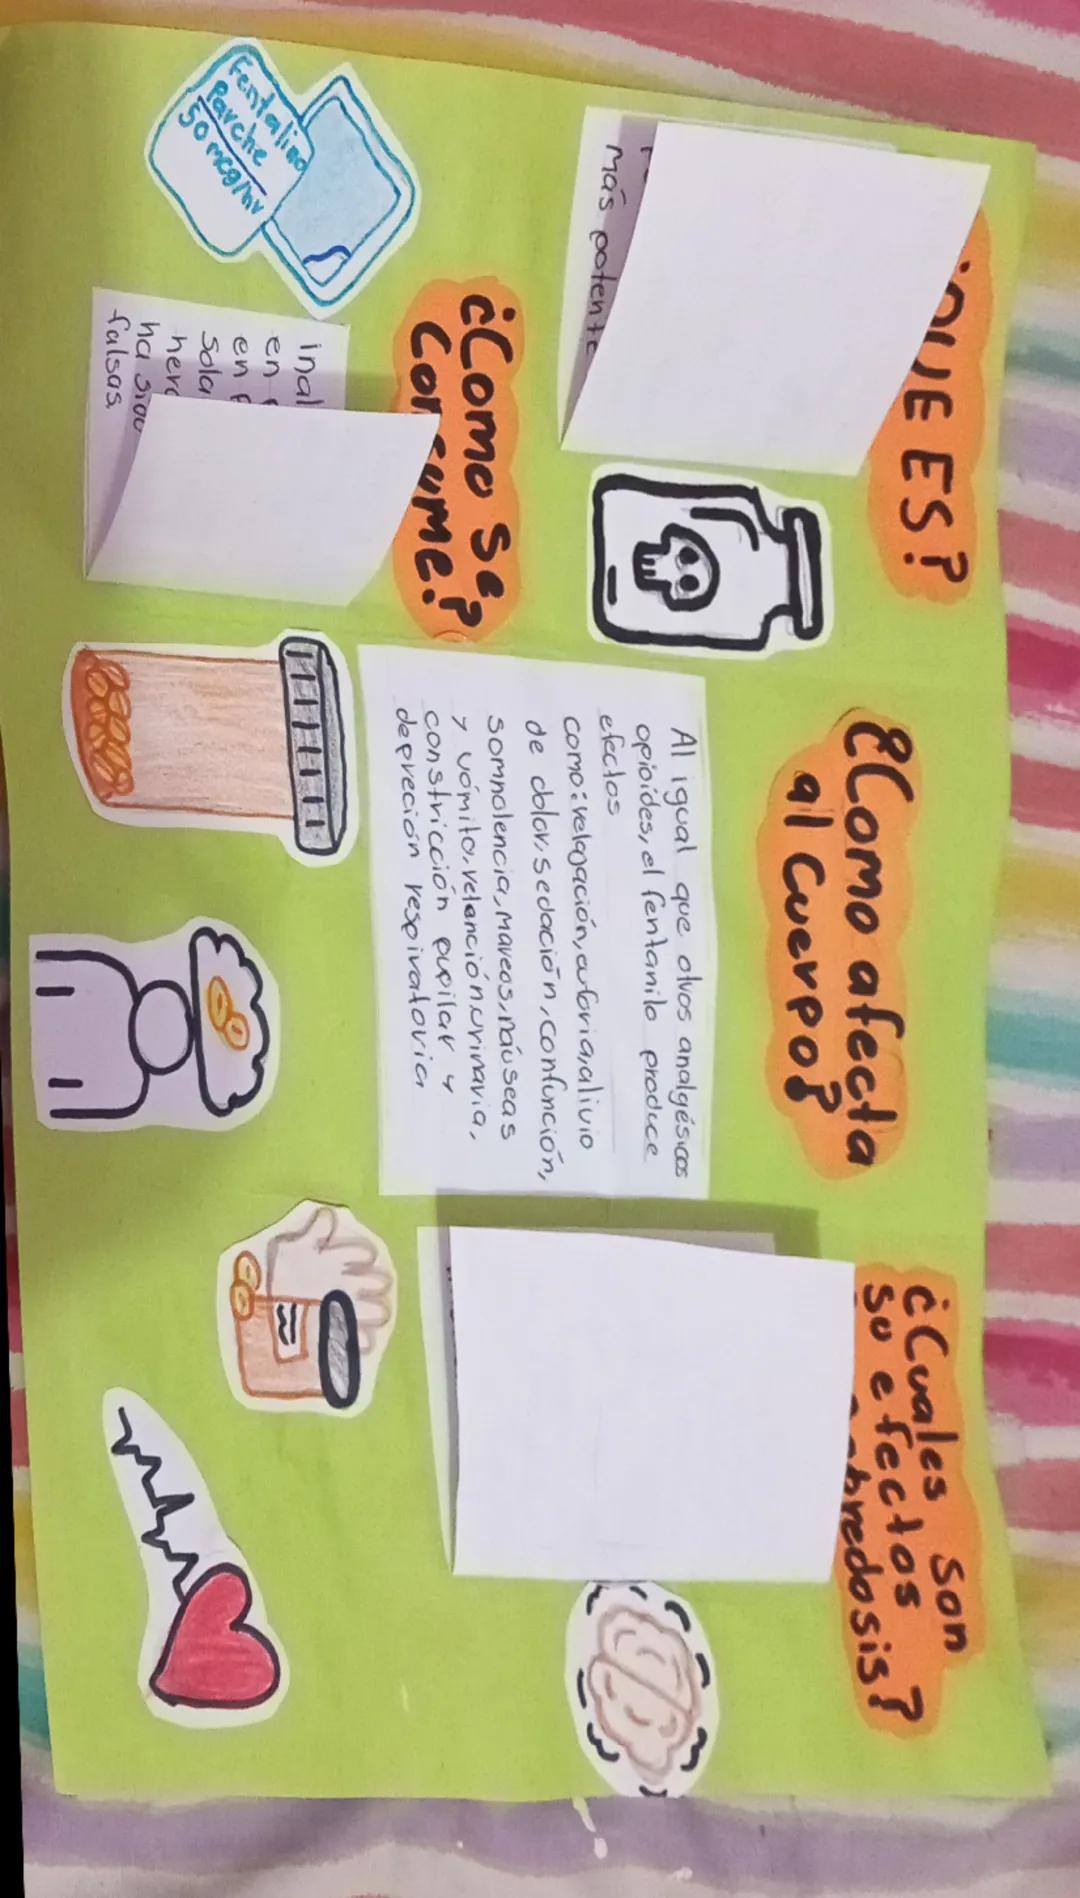 QUE ES?
más potente
Fentalino
Parche
50 mcg/hr
¿Como se
Consume?
inal
en
en
sola
ha sido
falsas.
¿Como afecta
al Cuerpo?
Al igual que otros analgésicos
opioídes, el fentanilo produce
efectos
como: relajación, euforia, alivio
de dolor, sedación, confunción,
somnolencia, mareos, náuseas
y vómito, retención, urinaria,
constricción pupilar y
depreción respiratoria
¿Cuales son
su efectos
sobredosis?